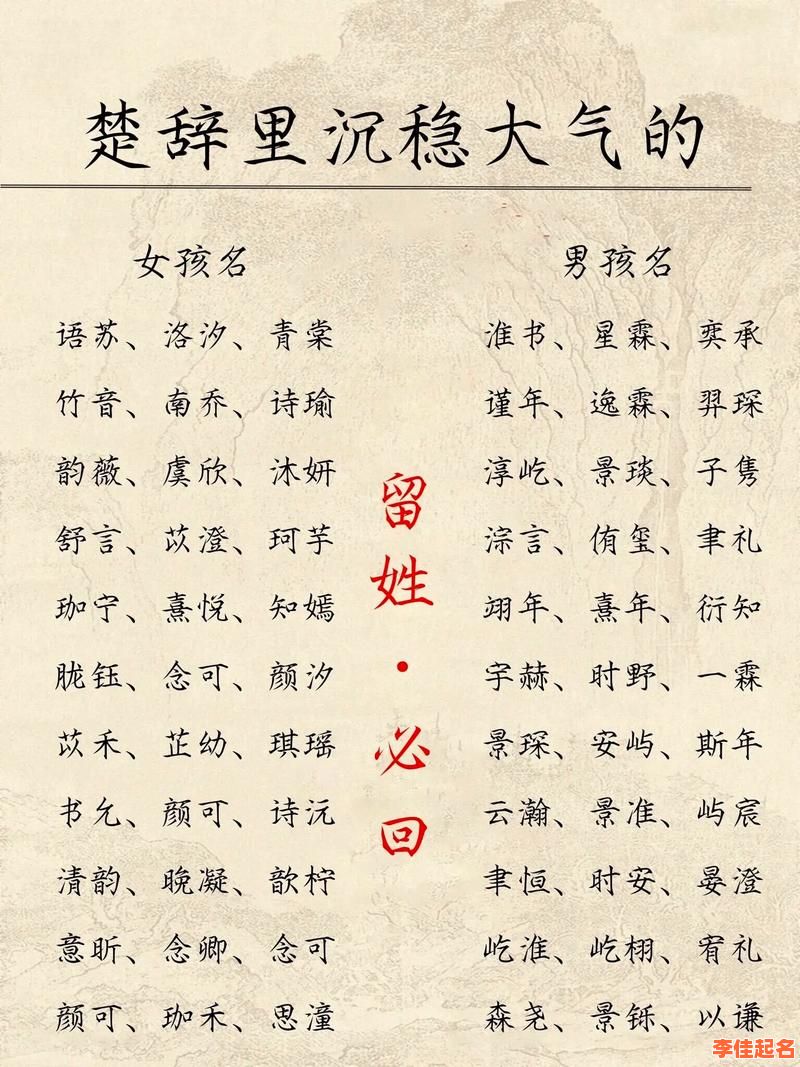 楚辞里沉稳大气的
女孩名
语苏、洛汐、青棠
竹音、南乔、诗瑜
韵薇、虞欣、沐妍
舒言、苡澄、珂芋
珈宁、熹悦、知嫣
胧钰、念可、颜汐
苡禾、芷幼、琪瑶
书允、颜可、诗沅
清韵、晚凝、歆柠
意昕、念卿、念可
颜可、珈禾、思潼
留姓·必回
男孩名
淮书、星霖、奕承
谨年、逸霖、羿琛
淳屹、景琰、子隽
淙言、侑玺、聿礼
翊年、熹年、衍知
宇赫、时野、一霖
景琛、安屿、斯年
云瀚、景淮、屿宸
聿恒、时安、晏澄
屹淮、屹栩、宥礼
森尧、景铄、以谦
李佳起名